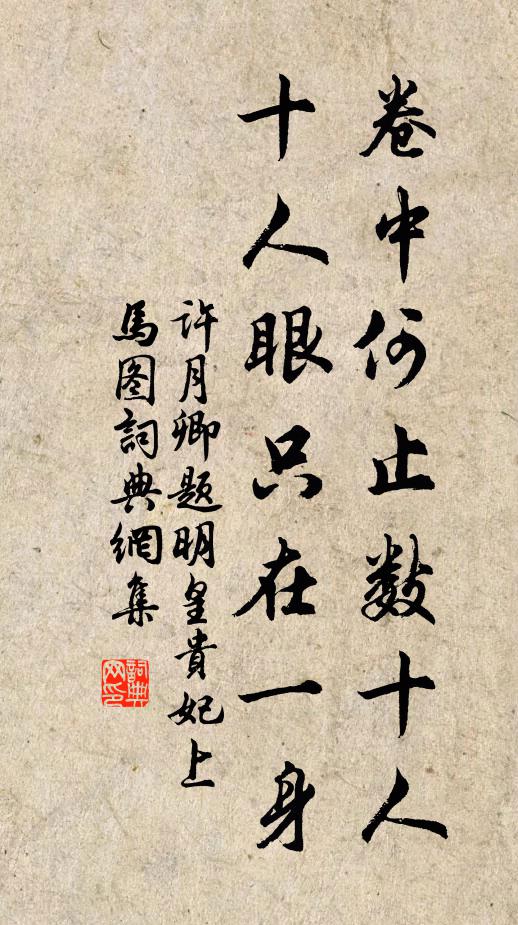 卷中何止数十人
十人眼只在一身
许月卿题明皇貴妃上
馬图詞典網集
詞典网印